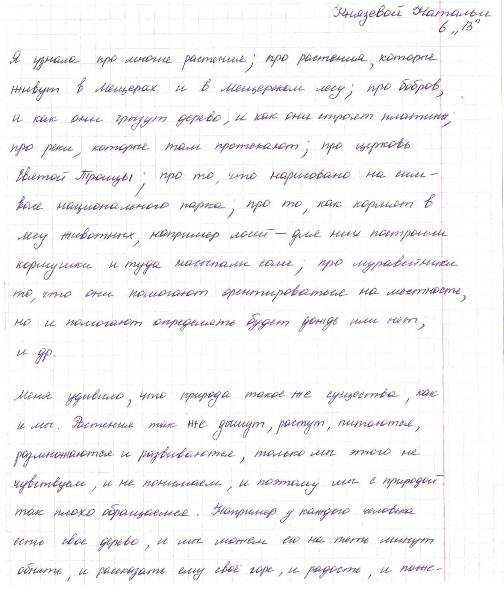 Князевой Натальи
6 „В"
Я узнала про многие растения; про растения, которые
живут в Мещерах и в Мещерском лесу; про бобров,
и как они грызут дерево, и как они строят плотины;
про реки, которые там протекают; про церковь
Святой Троицы; про то, что нарисовано на сим-
воле национального парка; про то, как кормят в
лесу животных, например лосей – для них построили
кормушки и туда насыпали соли; про муравейники
то, что они помогают орентироваться на местности,
но и помогают определять будет дождь или нет,
и др.
Меня удивило, что природа такое же существо, как
и мы. Растения так же дышут, растут, питаются,
размножаются и развиваются, только мы этого не
чувствуем, и не понимаем, и поэтому мы с природой
так плохо обращаемся. Например у каждого человека
есть своё дерево, и мы можем его на пять минут
обнять, и рассказать ему своё горе, и радость, и пож-